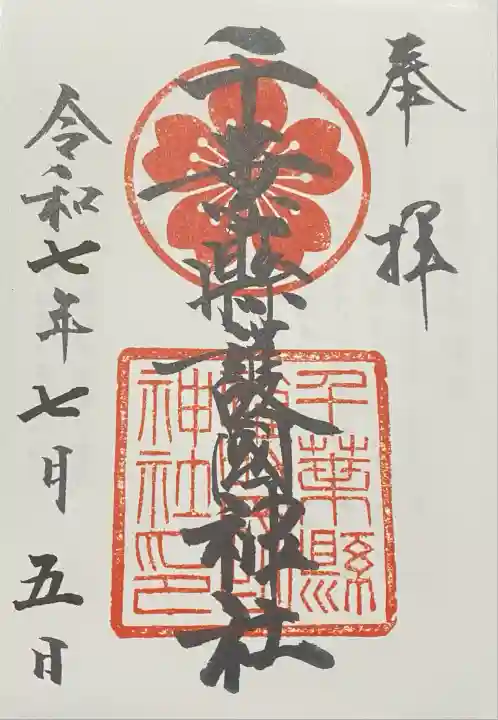 奉拝
千葉縣護國神社
千葉縣
護國神社
神社印
令和七年七月五日